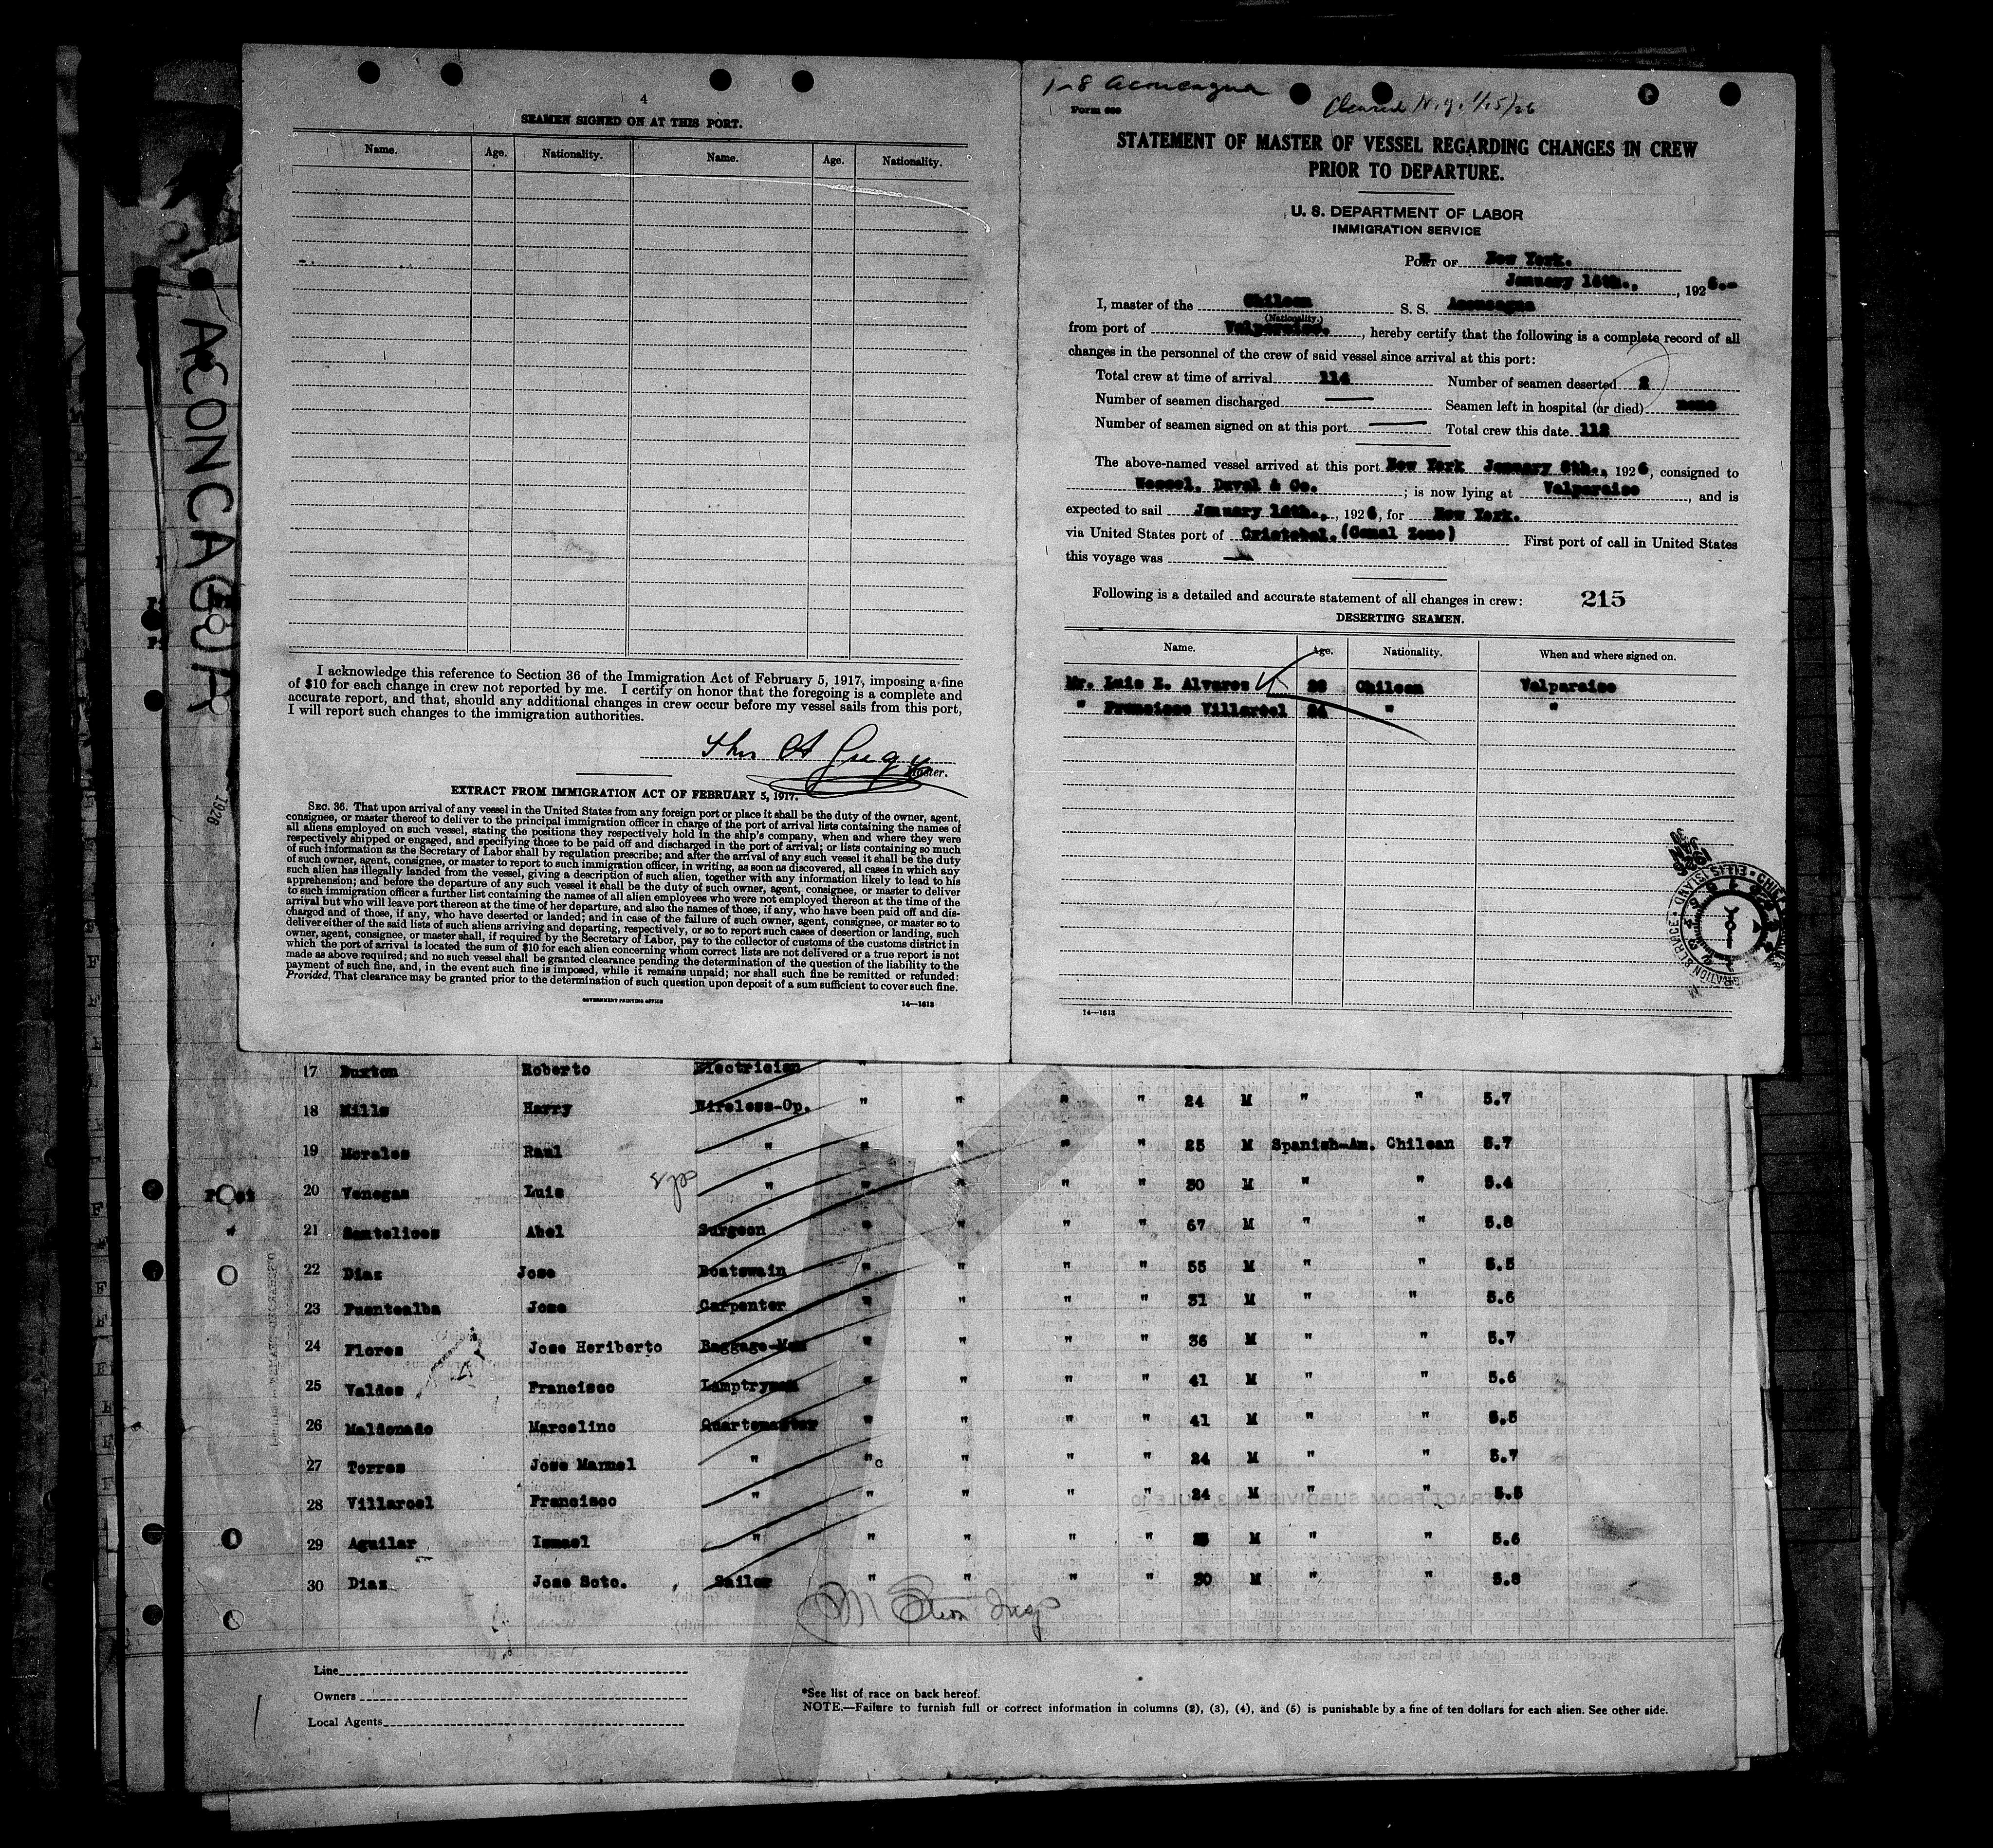 4
SEAMEN SIGNED ON AT THIS PORT.
Name. Age. Nationality. Name. Age. Nationality.
I acknowledge this reference to Section 36 of the Immigration Act of February 5, 1917, imposing a fine
of $10 for each change in crew not reported by me. I certify on honor that the foregoing is a complete and
accurate report, and that, should any additional changes in crew occur before my vessel sails from this port,
I will report such changes to the immigration authorities.
Master.
EXTRACT FROM IMMIGRATION ACT OF FEBRUARY 5, 1917.
SEC. 36. That upon arrival of any vessel in the United States from any foreign port or place it shall be the duty of the owner, agent,
consignee, or master thereof to deliver to the principal immigration officer in charge of the port of arrival lists containing the names of
all aliens employed on such vessel, stating the positions they respectively hold in the ship's company, when and where they were
respectively shipped or engaged, and specifying those to be paid off and discharged in the port of arrival; or lists containing so much
of such information as the Secretary of Labor shall by regulation prescribe; and after the arrival of any such vessel it shall be the duty
of such owner, agent, consignee, or master to report to such immigration officer, in writing, as soon as discovered, all cases in which any
such alien has illegally landed from the vessel, giving a description of such alien, together with any information likely to lead to his
apprehension; and before the departure of any such vessel it shall be the duty of such owner, agent, consignee, or master to deliver
to such immigration officer a further list containing the names of all alien employees who were not employed thereon at the time of the
arrival but who will leave port thereon at the time of her departure, and also the names of those, if any, who have been paid off and dis-
charged and of those, if any, who have deserted or landed; and in case of the failure of such owner, agent, consignee, or master so to
deliver either of the said lists of such aliens arriving and departing, respectively, or so to report such cases of desertion or landing, such
owner, agent, consignee, or master shall, if required by the Secretary of Labor, pay to the collector of customs of the customs district in
which the port of arrival is located the sum of $10 for each alien concerning whom correct lists are not delivered or a true report is not
made as above required; and no such vessel shall be granted clearance pending the determination of the question of the liability to the
payment of such fine, and, in the event such fine is imposed, while it remains unpaid; nor shall such fine be remitted or refunded:
Provided, That clearance may be granted prior to the determination of such question upon deposit of a sum sufficient to cover such fine.
GOVERNMENT PRINTING OFFICE 14—1613
1-8 Aconcagua Cleared N.Y. 1/15/26
Form 689
STATEMENT OF MASTER OF VESSEL REGARDING CHANGES IN CREW
PRIOR TO DEPARTURE.
U. S. DEPARTMENT OF LABOR
IMMIGRATION SERVICE
PORT OF New York.
January 15th., 1926.-
I, master of the Chilean S. S. Aconcagua
(Nationality.)
from port of Valparaiso., hereby certify that the following is a complete record of all
changes in the personnel of the crew of said vessel since arrival at this port:
Total crew at time of arrival 114 Number of seamen deserted 2
Number of seamen discharged — Seamen left in hospital (or died) none
Number of seamen signed on at this port — Total crew this date 112
The above-named vessel arrived at this port New York January 8th., 1926, consigned to
Wessel, Duval & Co. ; is now lying at Valparaiso, and is
expected to sail January 15th., 1926, for New York.
via United States port of Cristobal. (Canal Zone) First port of call in United States
this voyage was —
Following is a detailed and accurate statement of all changes in crew: 215
DESERTING SEAMEN.
Name. Age. Nationality. When and where signed on.
Mr. Luis E. Alvares Chilean Valparaiso
" Francisco Villaroel 24 " "
14—1613
ACONCAGUA
1926
17 Buxton Roberto Electrician "
18 Mills Harry Wireless-Op. " " " " 24 M " " 5.7
19 Morales Raul " " " " " 25 M Spanish-Am. Chilean 5.7
20 Venegas Luis " " " " " 30 M " " 5.4
21 Santelices Abel Surgeon " " " " 67 M " " 5.8
22 Diaz Jose Boatswain " " " " 55 M " " 5.5
23 Fuentealba Jose Carpenter " " " " 31 M " " 5.6
24 Flores Jose Heriberto Baggage-Man " " " " 36 M " " 5.7
25 Valdes Francisco Lamptryman " " " " 41 M " " 5.6
26 Maldonado Marcelino Quartemaster " " " " 41 M " " 5.5
27 Torres Jose Manuel " " " " " 24 M " " 5.7
28 Villaroel Francisco " " " " " 24 M " " 5.5
29 Aguilar Ismael " " " " " M " " 5.6
30 Diaz Jose Soto. Sailor " " " " 30 M " " 5.8
Line
Owners
Local Agents
*See list of race on back hereof.
NOTE.—Failure to furnish full or correct information in columns (2), (3), (4), and (5) is punishable by a fine of ten dollars for each alien. See other side.